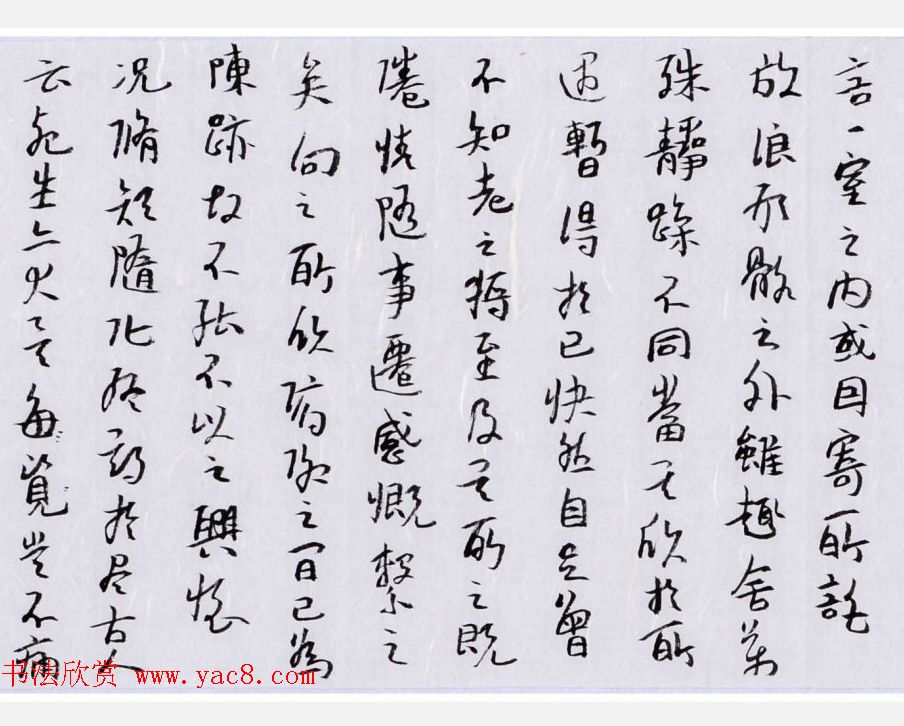 言一室之内或因寄所託
放浪形骸之外雖趣舍萬
殊靜躁不同當其欣於所
遇暫得於己快然自足曾
不知老之將至及其所之既
倦情隨事遷感慨繫之
矣向之所欣俯仰之間已為
陳跡故不能不以之興懷
況脩短隨化終期於盡古人
云死生亦大矣每覽豈不痛
书法欣赏 www.yac8.com